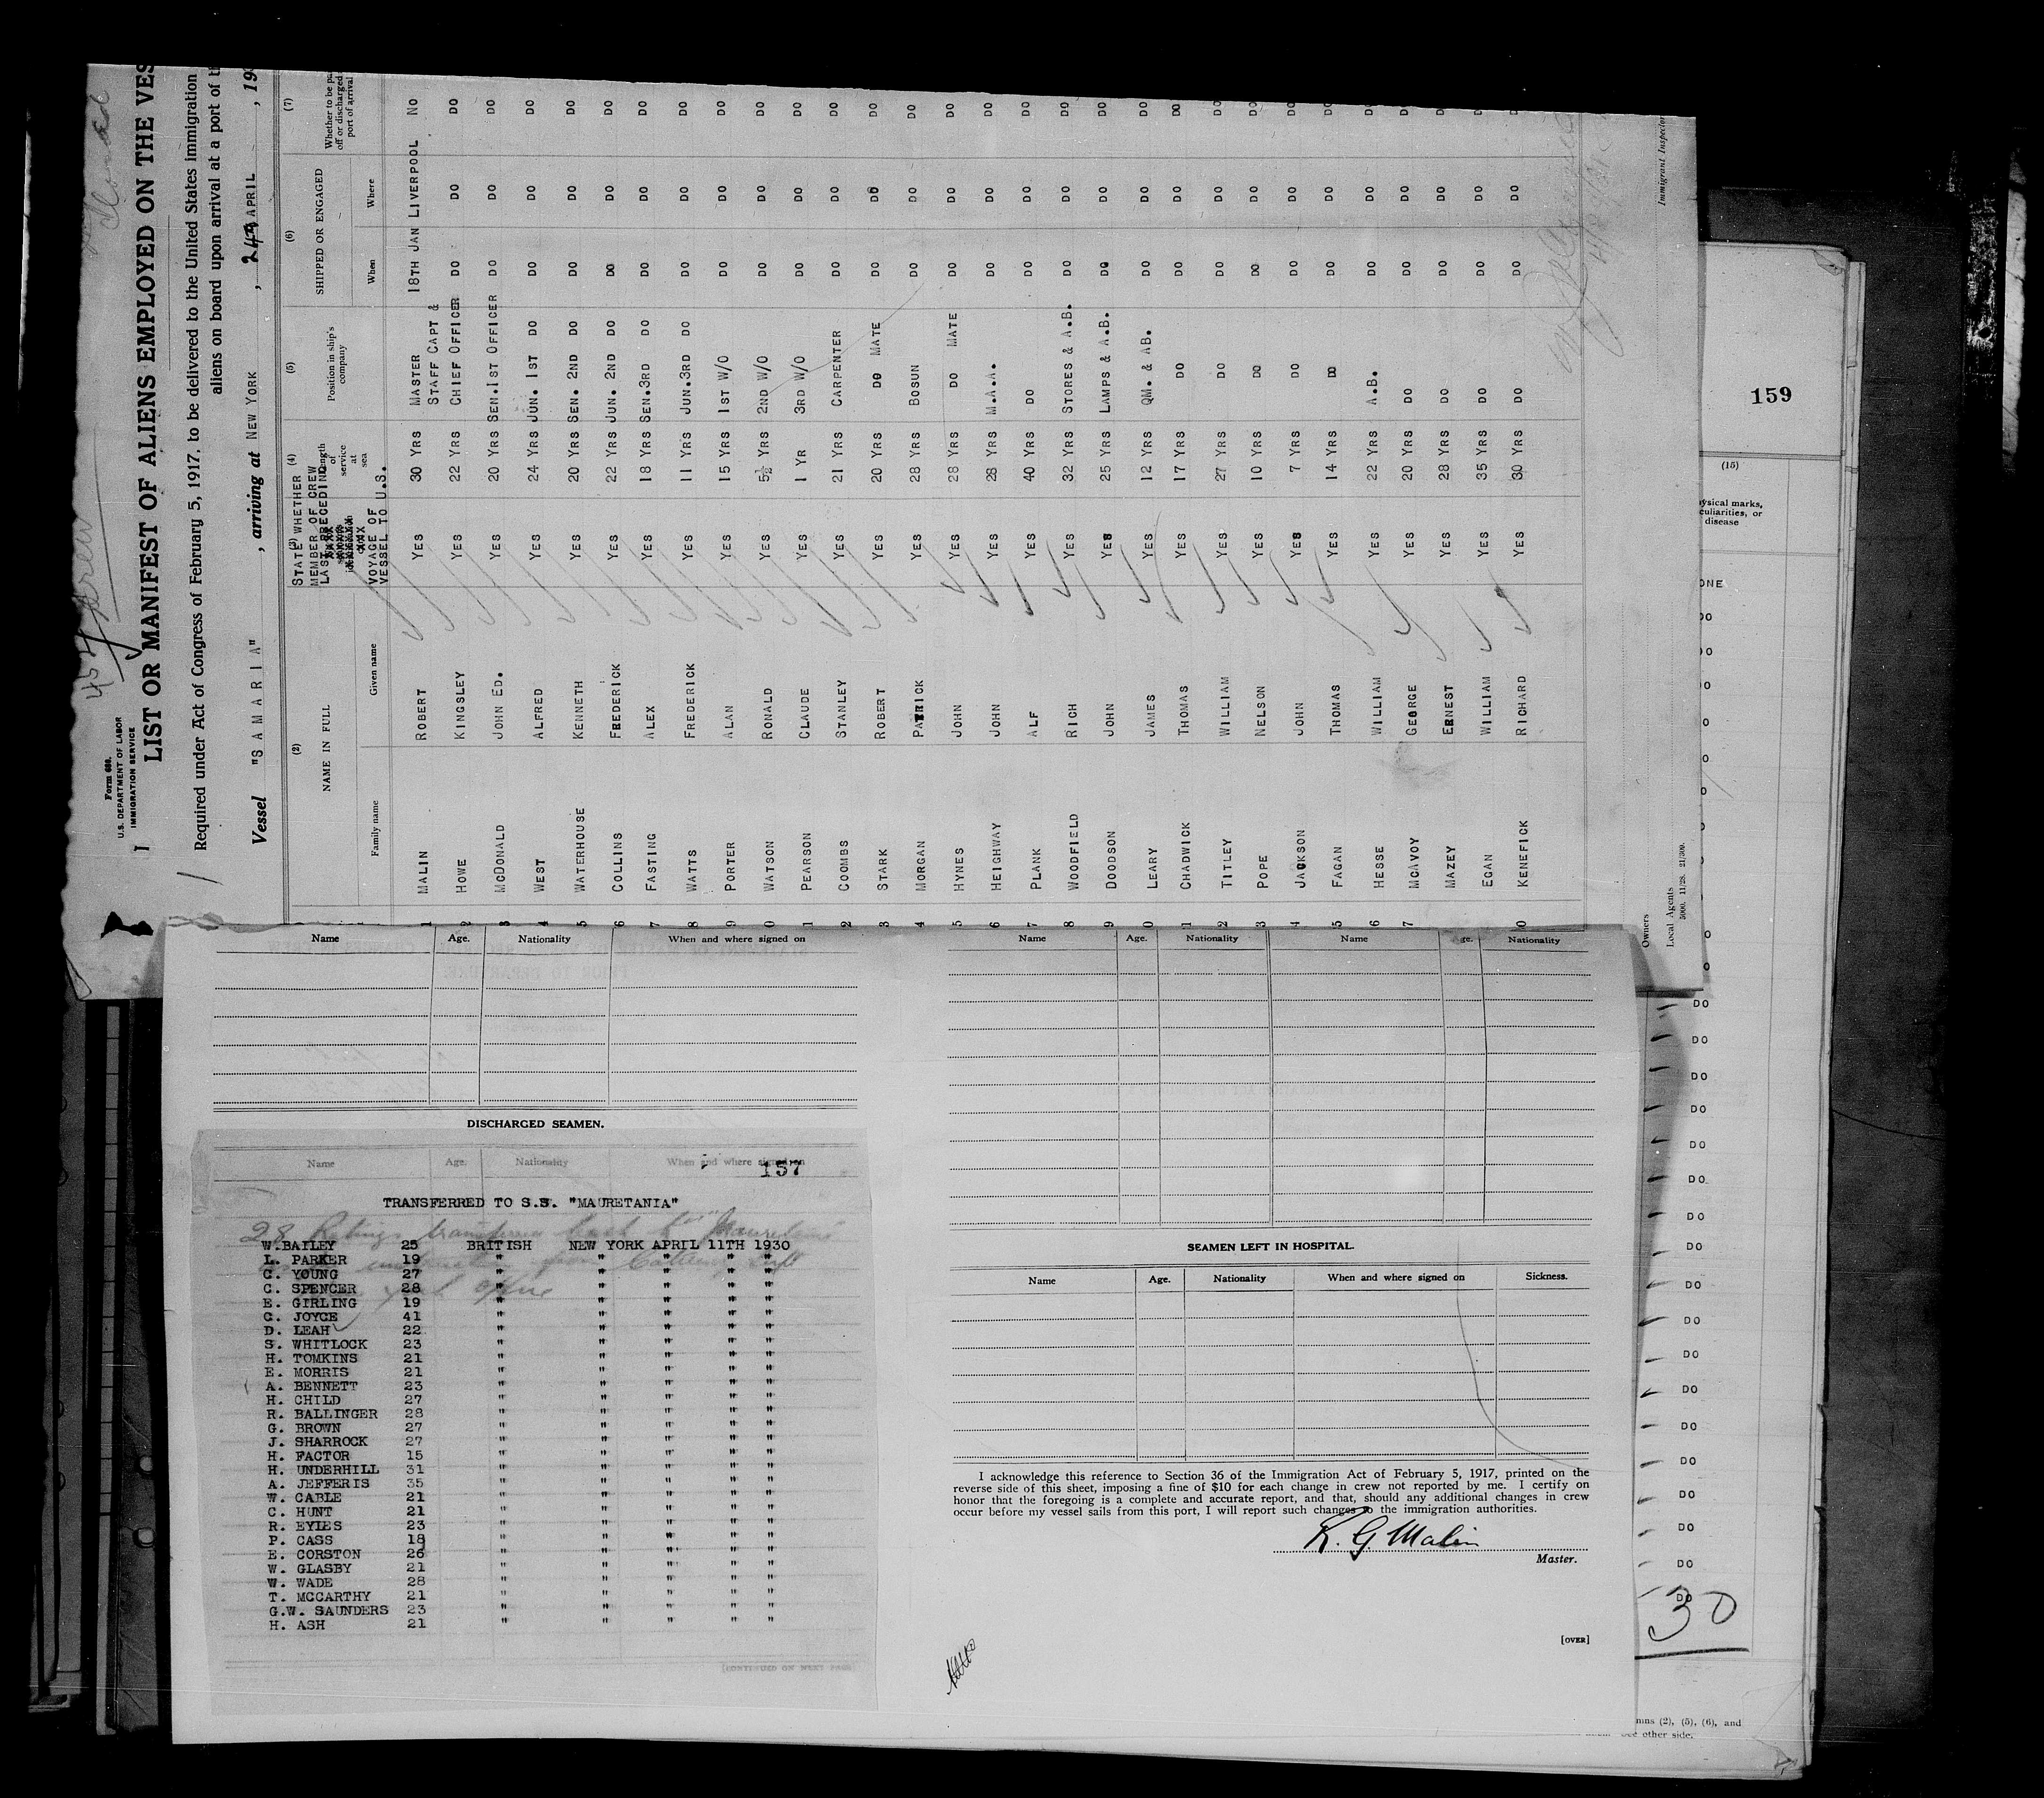 Form 680.
U.S. DEPARTMENT OF LABOR
IMMIGRATION SERVICE
LIST OR MANIFEST OF ALIENS EMPLOYED ON THE VES
Required under Act of Congress of February 5, 1917, to be delivered to the United States immigration
aliens on board upon arrival at a port of t
Vessel "SAMARIA", arriving at NEW YORK, APRIL, 19
(2) (3) (4) (5) (6) (7)
NAME IN FULL
Family name Given name
STATE WHETHER MEMBER OF CREW LAST PRECEDING VOYAGE OF VESSEL TO U.S.
Length of service at sea
Position in ship's company
SHIPPED OR ENGAGED
When Where
Whether to be pa
off or discharged
port of arrival
1 MALIN ROBERT YES 30 YRS MASTER 18TH JAN LIVERPOOL NO
2 HOWE KINGSLEY YES 22 YRS STAFF CAPT & CHIEF OFFICER DO DO DO
3 MCDONALD JOHN ED. YES 20 YRS SEN.1ST OFFICER DO DO DO
4 WEST ALFRED YES 24 YRS JUN. 1ST DO DO DO DO
5 WATERHOUSE KENNETH YES 20 YRS SEN. 2ND DO DO DO DO
6 COLLINS FREDERICK YES 22 YRS JUN. 2ND DO DO DO DO
7 FASTING ALEX YES 18 YRS SEN.3RD DO DO DO DO
8 WATTS FREDERICK YES 11 YRS JUN.3RD DO DO DO DO
9 PORTER ALAN YES 15 YRS 1ST W/O DO DO DO
0 WATSON RONALD YES 5½ YRS 2ND W/O DO DO DO
1 PEARSON CLAUDE YES 1 YR 3RD W/O DO DO DO
2 COOMBS STANLEY YES 21 YRS CARPENTER DO DO DO
3 STARK ROBERT YES 20 YRS DO MATE DO DO DO
4 MORGAN PATRICK YES 28 YRS BOSUN DO DO DO
5 HYNES JOHN YES 28 YRS DO MATE DO DO DO
6 HEIGHWAY JOHN YES 28 YRS M.A.A. DO DO DO
7 PLANK ALF YES 40 YRS DO DO DO DO
8 WOODFIELD RICH YES 32 YRS STORES & A.B. DO DO DO
9 DOODSON JOHN YES 25 YRS LAMPS & A.B. DO DO DO
0 LEARY JAMES YES 12 YRS QM. & AB. DO DO DO
1 CHADWICK THOMAS YES 17 YRS DO DO DO DO
2 TITLEY WILLIAM YES 27 YRS DO DO DO DO
3 POPE NELSON YES 10 YRS DO DO DO DO
4 JACKSON JOHN YES 7 YRS DO DO DO DO
5 FAGAN THOMAS YES 14 YRS DO DO DO DO
6 HESSE WILLIAM YES 22 YRS A.B. DO DO DO
7 MCAVOY GEORGE YES 20 YRS DO DO DO D
MAZEY ERNEST YES 28 YRS DO DO DO D
EGAN WILLIAM YES 35 YRS DO DO DO D
0 KENEFICK RICHARD YES 30 YRS DO DO DO D
Owners
Local Agents
Immigrant Inspector
Name Age. Nationality When and where signed on
DISCHARGED SEAMEN.
Name Age. Nationality When and where signed on
157
TRANSFERRED TO S.S. "MAURETANIA"
W.BAILEY 25 BRITISH NEW YORK APRIL 11TH 1930
L. PARKER 19 " " " " "
C. YOUNG 27 " " " " "
C. SPENCER 28 " " " " "
E. GIRLING 19 " " " " "
C. JOYCE 41 " " " " "
D. LEAH 22 " " " " "
S. WHITLOCK 23 " " " " "
H. TOMKINS 21 " " " " "
E. MORRIS 21 " " " " "
A. BENNETT 23 " " " " "
H. CHILD 27 " " " " "
R. BALLINGER 28 " " " " "
G. BROWN 27 " " " " "
J. SHARROCK 27 " " " " "
H. FACTOR 15 " " " " "
H. UNDERHILL 31 " " " " "
A. JEFFERIS 35 " " " " "
W. CABLE 21 " " " " "
C. HUNT 21 " " " " "
R. EYLES 23 " " " " "
P. CASS 18 " " " " "
E. CORSTON 26 " " " " "
W. GLASBY 21 " " " " "
W. WADE 28 " " " " "
T. MCCARTHY 21 " " " " "
G.W. SAUNDERS 23 " " " " "
H. ASH 21 " " " " "
[CONTINUED ON NEXT PAGE]
Name Age. Nationality Name Age. Nationality
SEAMEN LEFT IN HOSPITAL.
Name Age. Nationality When and where signed on Sickness.
I acknowledge this reference to Section 36 of the Immigration Act of February 5, 1917, printed on the
reverse side of this sheet, imposing a fine of $10 for each change in crew not reported by me. I certify on
honor that the foregoing is a complete and accurate report, and that, should any additional changes in crew
occur before my vessel sails from this port, I will report such changes to the immigration authorities.
R. G. Malin
Master.
[OVER]
159
(15)
ysical marks,
culiarities, or
disease
ONE
DO
DO
DO
DO
DO
DO
DO
DO
DO
DO
DO
DO
DO
DO
DO
DO
DO
30
mns (2), (5), (6), and
See other side.